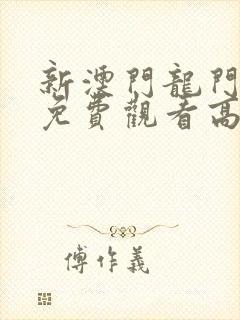 新湮門龍門
免費觀看高
傅作義